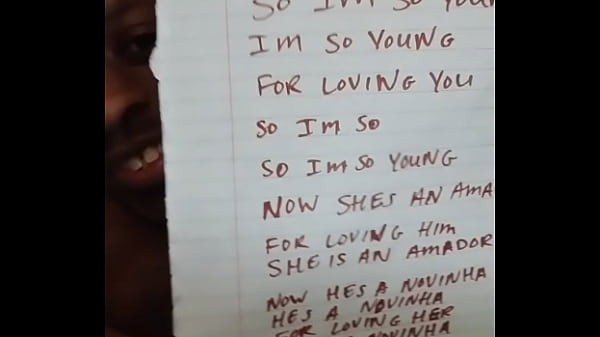 SO IM SO YOUN
IM SO YOUNG
FOR LOVING YOU
SO IM SO
SO IM SO YOUNG
NOW SHES AN AMA
FOR LOVING HIM
SHE IS AN AMADOR
NOW HES A NOVINHA
HES A NOVINHA
FOR LOVING HER
NOVINHA